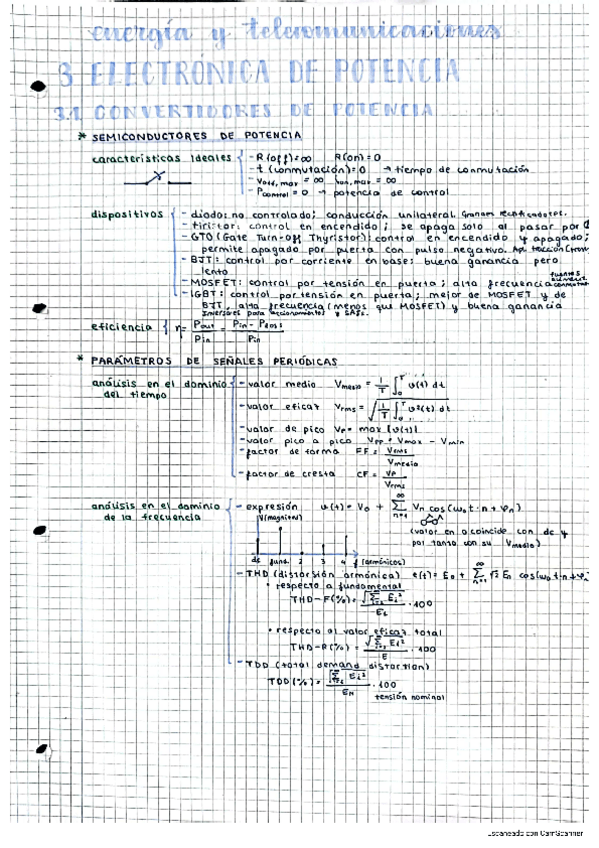 energía y telecomunicaciones
3 ELECTRÓNICA DE POTENCIA
3.1 CONVERTIDORES DE POTENCIA
* SEMICONDUCTORES DE POTENCIA
características ideales - R(off)=∞ R(on)=0
- t (conmutación)=0 → tiempo de conmutación
- Voff, max = ∞ Ion, max = ∞
- Pcontrol = 0 → potencia de control
dispositivos - diodo: no controlado; conducción unilateral.
- tiristor: control en encendido; se apaga solo al pasar por
- GTO (Gate Turn-off Thyristor): control en encendido y apagado;
permite apagado por puerta con pulso negativo.
- BJT: control por corriente en base; buena ganancia pero
lento
- MOSFET: control por tensión en puerta; alta frecuencia
- IGBT: control por tensión en puerta; mejor de MOSFET y de
BJT, alta frecuencia (menos que MOSFET) y buena ganancia
Inversores para accionamientos y SAIs.
eficiencia η = Pout / Pin = (Pin - Ploss) / Pin
* PARÁMETROS DE SEÑALES PERIÓDICAS
análisis en el dominio - valor medio Vmedio = 1/T ∫₀ᵀ v(t) dt
del tiempo
- valor eficaz Vrms = √(1/T ∫₀ᵀ v²(t) dt)
- valor de pico Vp = max |v(t)|
- valor pico a pico Vpp = Vmax - Vmin
- factor de forma FF = Vrms / Vmedio
- factor de cresta CF = Vp / Vrms
análisis en el dominio - expresión v(t) = V0 + ∑ₙ₌₁^∞ Vn cos(ω0 t·n + φn)
de la frecuencia
V(magnitud)
(valor en 0 coincide con dc y
por tanto con su Vmedio)
dc fund. 2 3 4 f (armónicos)
- THD (distorsión armónica) e(t) = E0 + ∑ₙ₌₁^∞ √2 En cos(ω0 t·n + φn
• respecto a fundamental
THD-F(%) = √(∑ Ei²) / E1 · 100
• respecto al valor eficaz total
THD-R(%) = √(∑ Ei²) / E · 100
- TDD (total demand distortion)
TDD (%) = √(∑ Ei²) / EN · 100
tensión nominal
Escaneado con CamScanner